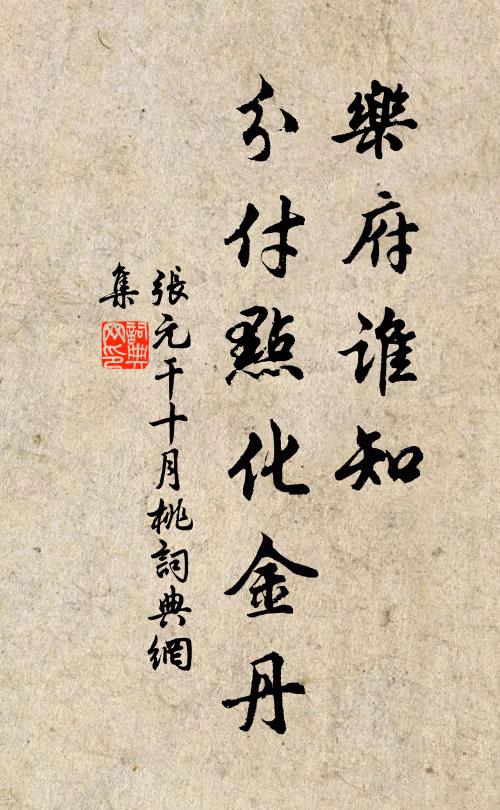 樂府誰知
分付點化金丹
張元干十月桃詞典網
集
詞典
网印